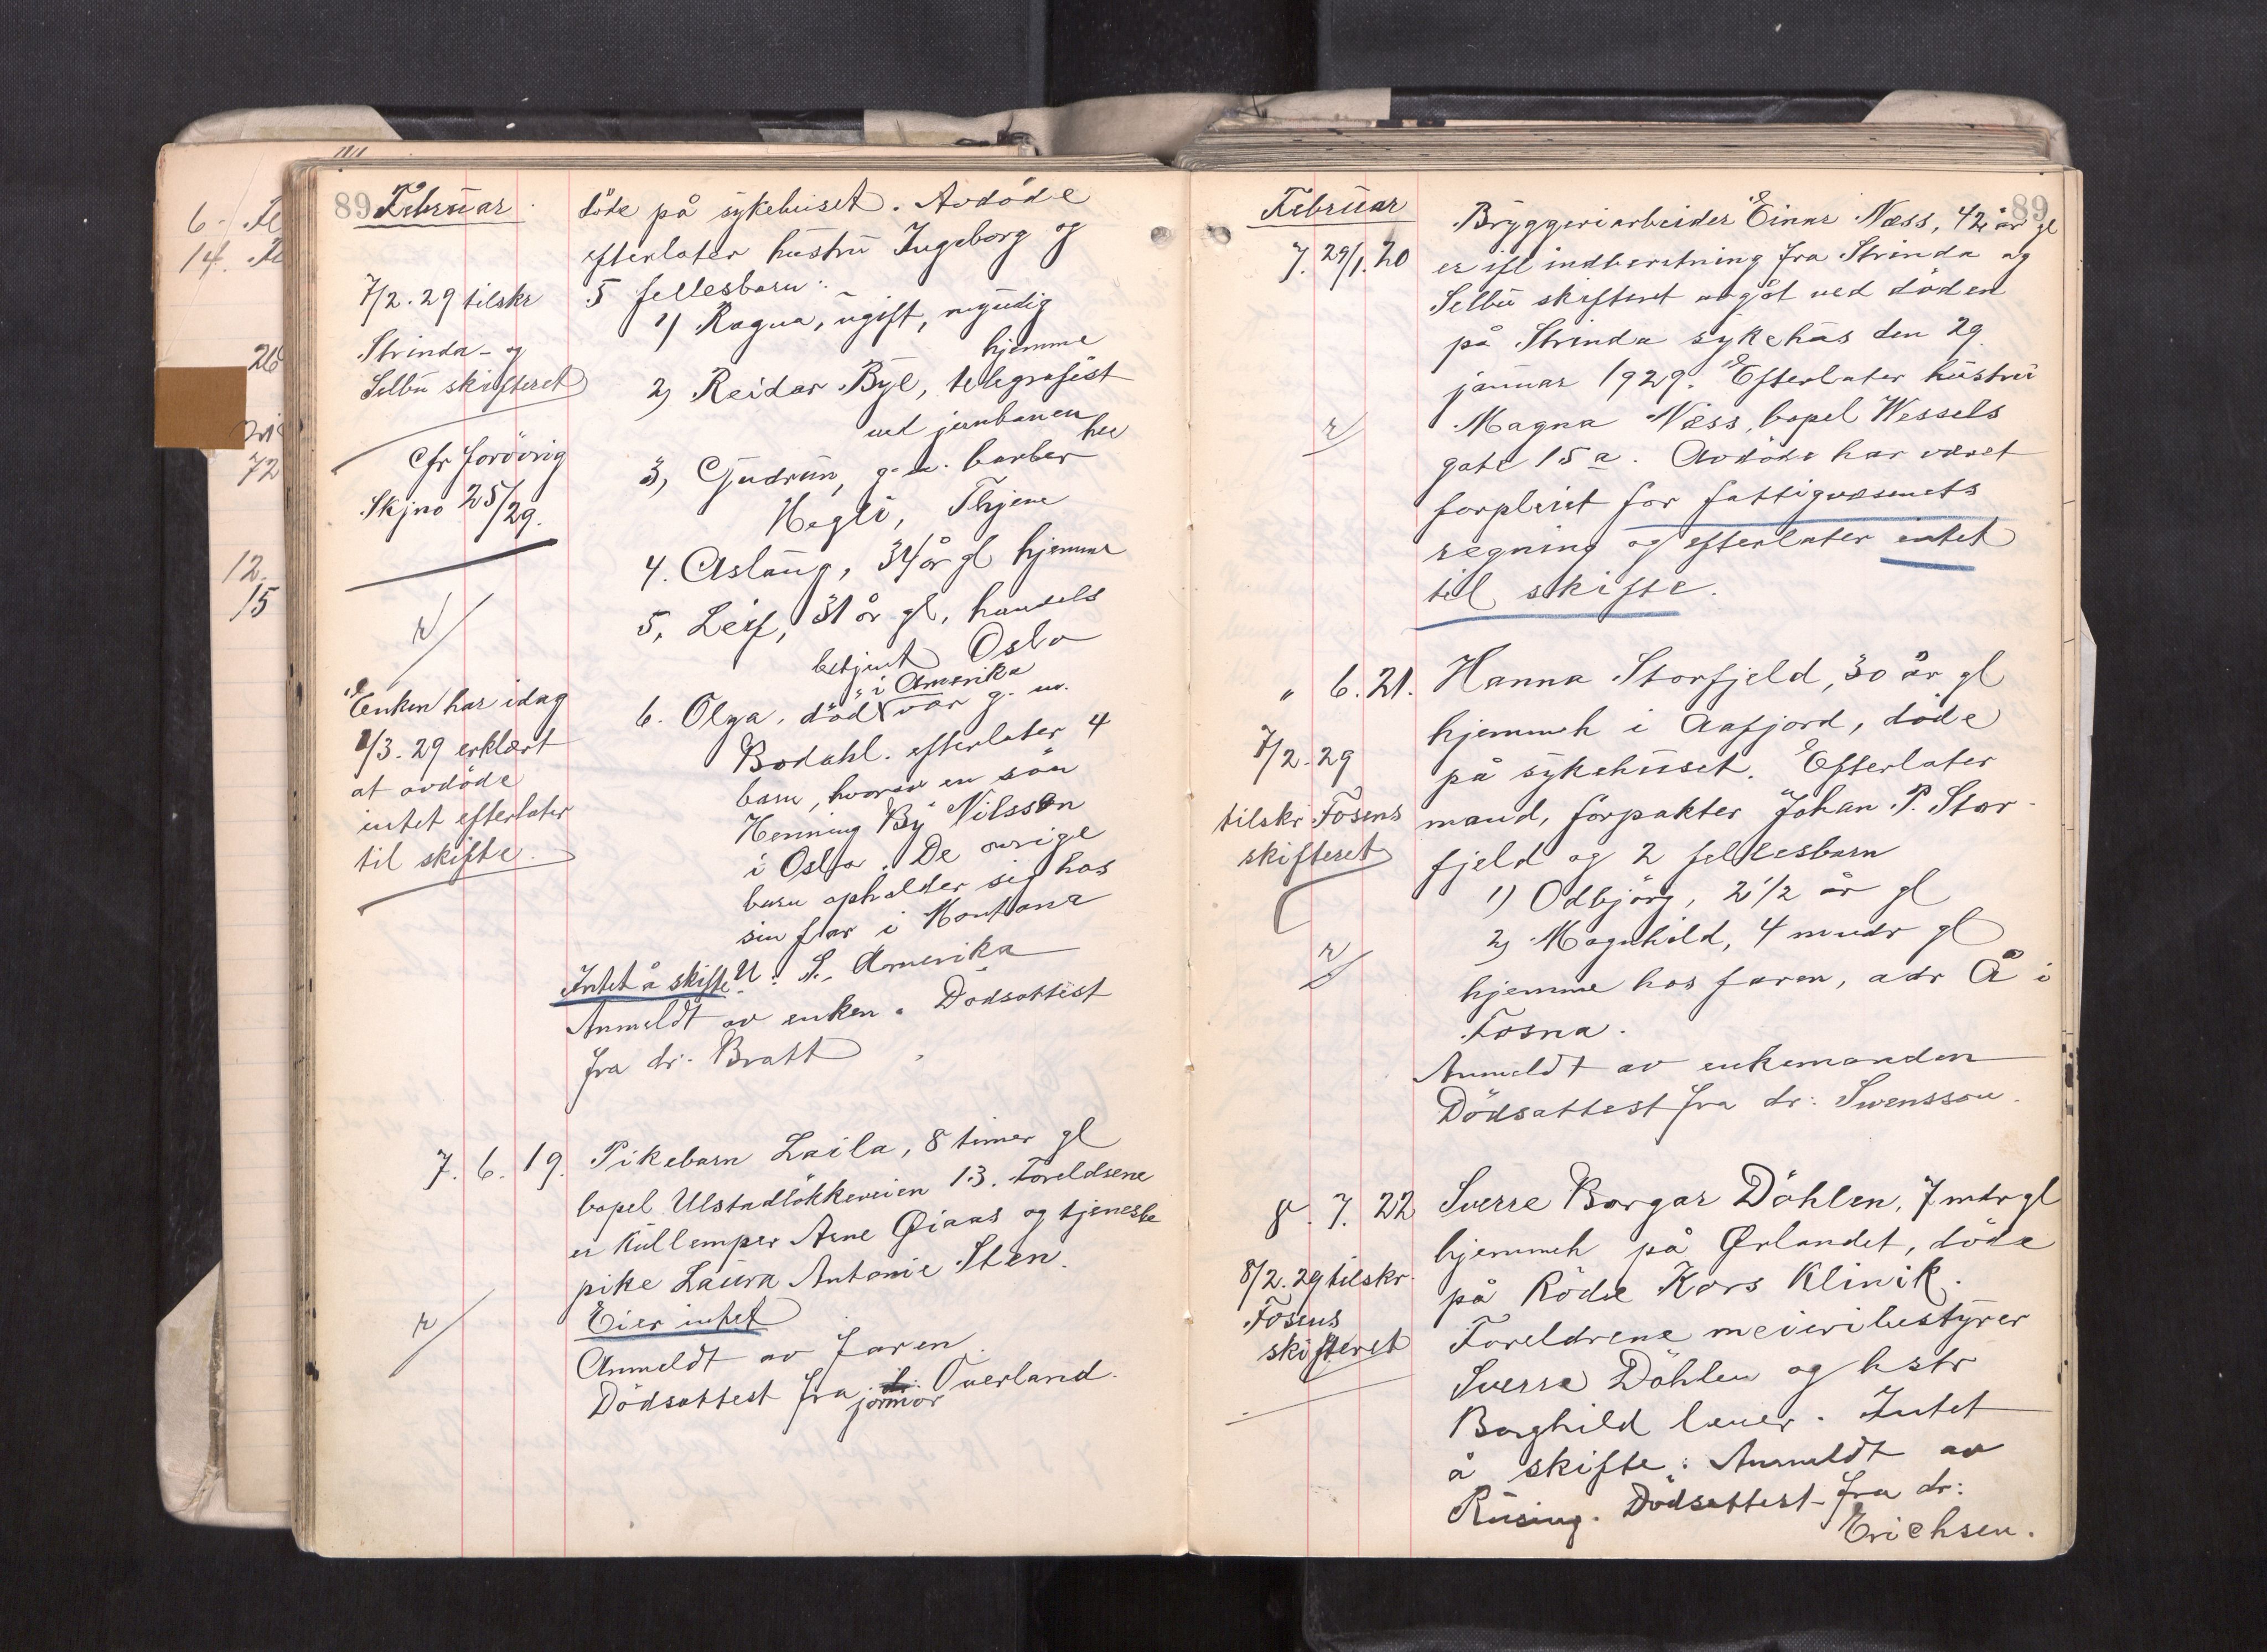 89 Februar
döde på sykehuset. Avdöde
efterlater hustru Ingeborg og
5 fellesbarn:
1) Ragna, ugift, myndig
hjemme
2) Reidar Bye, telegrafist
ved jernbanen
her
3) Gudrun, g.m. barber
Hegli, Thjene
4. Aslaug, 34 år gl hjemme
5, Leif, 31 år gl, handels
betjent Oslo
i Amerika
6. Olga, död var g. m.
Bodahl. efterlater 4
barn, hvorav en sön
Henning By Nilsson
i Oslo. De övrige
barn opholder sig hos
sin far i Montana
Intet å skifte U. S. Amerika
Anmeldt av enken. Dödsattest
fra dr. Bratt
7/2.29 tilskr
Strinda- og
Selbu skifteret
Cfr forövrig
Skjno 25/29.
Enken har idag
1/3.29 erklært
at avdöde
intet efterlater
til skifte.
7. 6. 19. Pikebarn Laila, 8 timer gl
bopel Ulstadlökkeveien 13. Foreldrene
er kullemper Arne Øiaas og tjeneste
pike Laura Antonie Sten.
Eier intet
Anmeldt av faren.
Dödsattest fra jormor Överland.
Februar 89
7. 29/1. 20 Bryggeriarbeider Einar Næss, 42 år gl
er ifl indberetning fra Strinda og
Selbu skifteret avgåt ved döden
på Strinda sykehus den 29.
januar 1929. Efterlater hustru
Magna Næss, bopel Wessels
gate 15 a. Avdöde har været
forpleiet for fattigvæsenets
regning og efterlater intet
til skifte.
" 6. 21. Hanna Storfjeld, 30 år gl
hjemmeh i Aafjord, döde
på sykehuset. Efterlater
mand, forpakter Johan P. Stor-
fjeld og 2 fellesbarn
1) Odbjörg, 2 1/2 år gl
2) Magnhild, 4 mndr gl
hjemme hos faren, adr Å i
Fosna.
Anmeldt av enkemanden
Dödsattest fra dr: Swensson.
7/2.29
tilskr Fosens
skifteret
8. 7. 22 Sverre Borgar Döhlen, 7 mdr gl
hjemmeh på Ørlandet, döde
på Röde Kors Klinik.
Foreldrene meieribestyrer
Sverre Döhlen og hstr
Borghild lever. Intet
å skifte. Anmeldt av
Rusing. Dödsattest fra dr:
Erichsen.
8/2.29 tilskr.
Fosens
skifteret